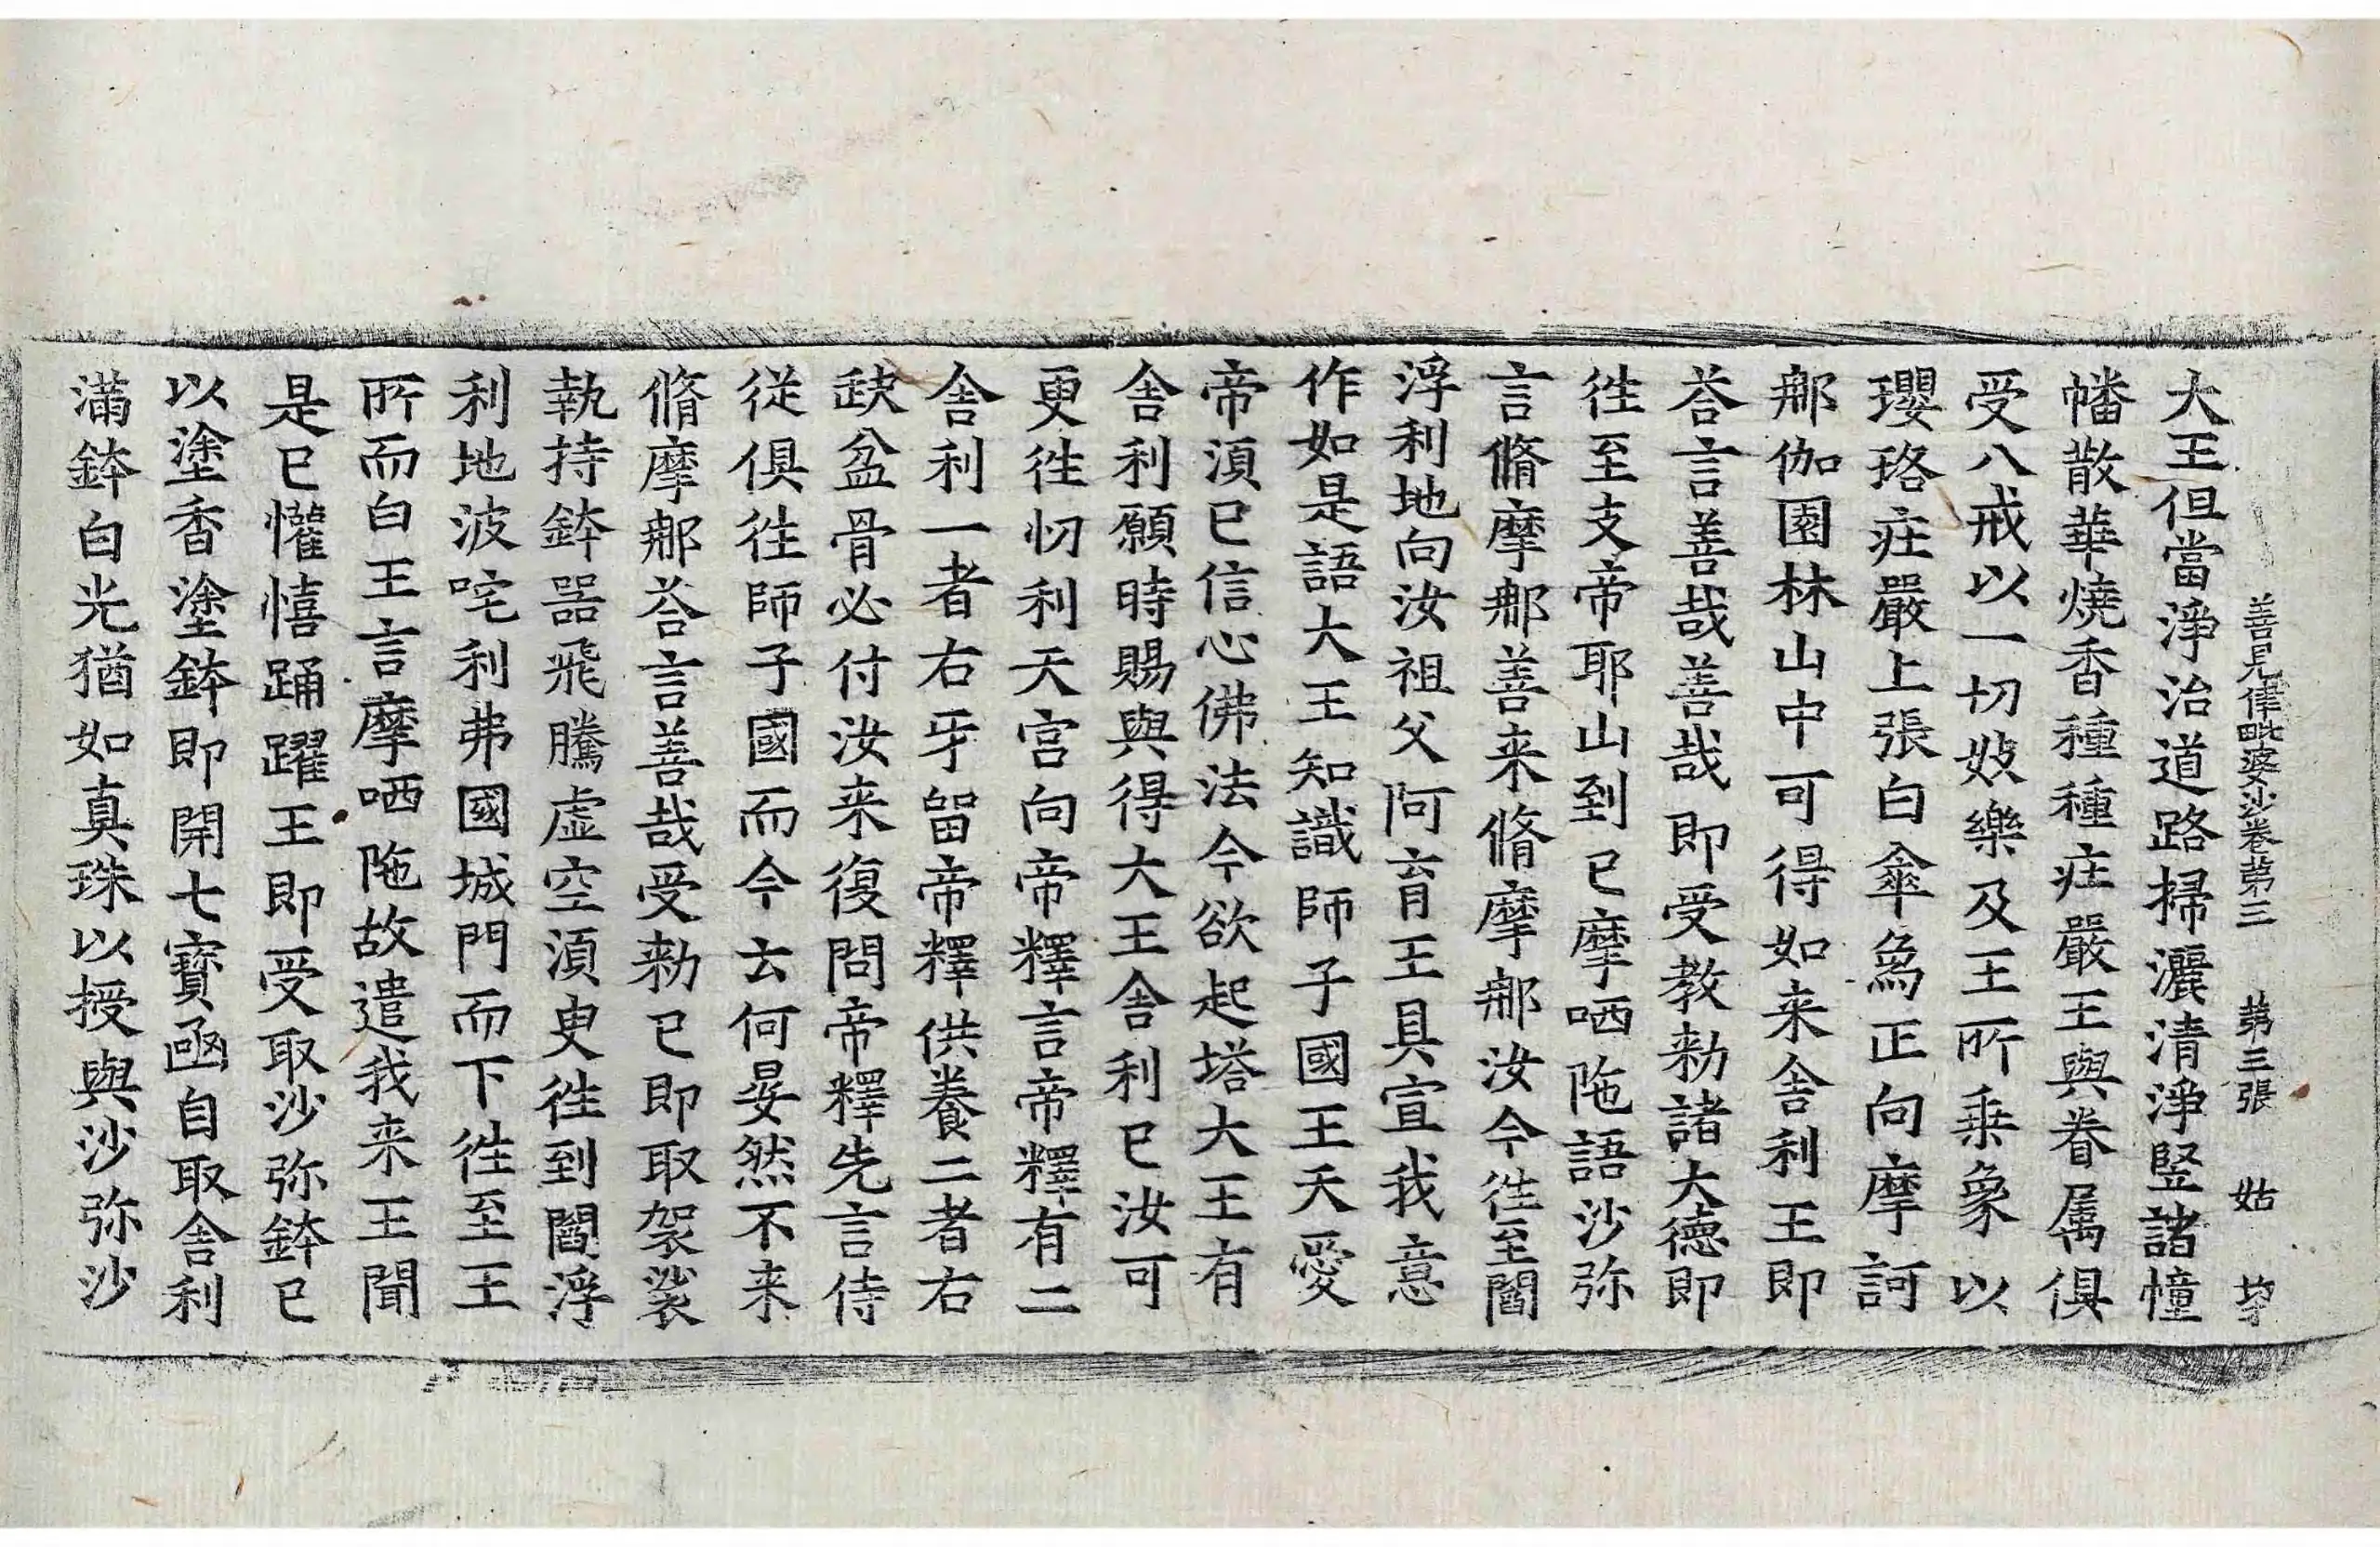 善見律毗婆沙卷第三 第三張 姑
大王但當淨治道路掃灑清淨竪諸幢
幡散華燒香種種庄嚴王與眷属俱
受八戒以一切妓樂及王所乗象以
瓔珞庄嚴上張白傘爲正向摩訶
郍伽園林山中可得如来舎利王即
荅言善哉善哉即受教勑諸大德即
徃至支帝耶山到已摩哂陁語沙弥
言脩摩郍善来脩摩郍汝今徃至閻
浮利地向汝祖父阿育王具宣我意
作如是語大王知識師子國王天愛
帝湏已信心佛法今欲起塔大王有
舎利願時賜與得大王舎利已汝可
更徃忉利天宫向帝釋言帝釋有二
舎利一者右牙留帝釋供養二者右
䤧盆骨必付汝来復問帝釋先言侍
従俱徃師子國而今云何晏然不来
脩摩郍荅言善哉受勑已即取袈裟
執持鉢噐飛騰虛空湏臾徃到閻浮
利地波咤利弗國城門而下徃至王
所而白王言摩哂陁故遣我来王聞
是已懽憘踊躍王即受取沙弥鉢已
以塗香塗鉢即開七寶凾自取舎利
滿鉢白光猶如真珠以授與沙弥沙